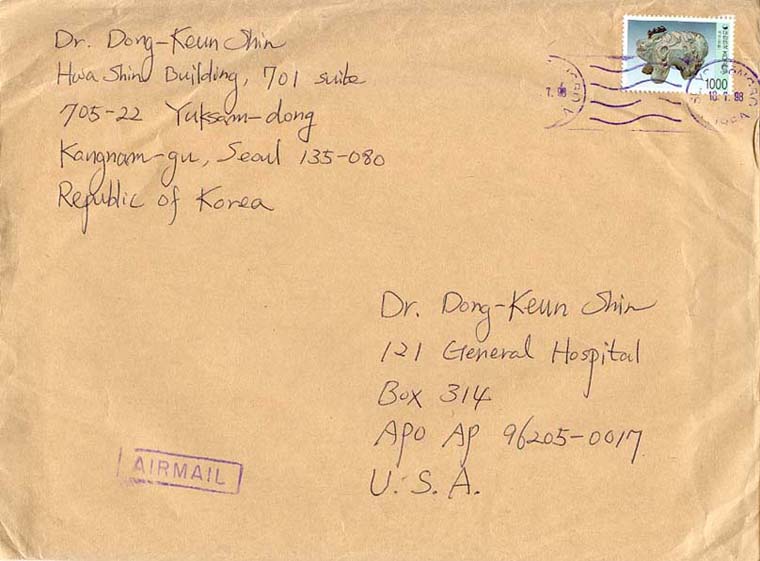 Dr. Dong-Keun Shin
Hwa Shin Building, 701 suite
705-22 Yuksam-dong
Kangnam-gu, Seoul 135-080
Republic of Korea
1000
10.7.98
Dr. Dong-Keun Shin
121 General Hospital
Box 314
APO AP 96205-0017
U.S.A.
AIRMAIL